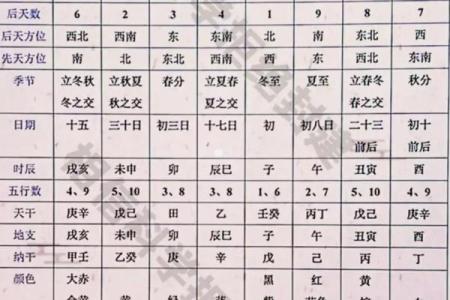 后天数 6 2 3 4 1 9 8 7
后天方位 西北 西南 东 东南 北 南 东北 西
先天方位 南 北 东北 西南 西 东 西北 东南
季节 立冬秋 立秋夏 春分 立夏春 冬至 夏至 立春冬 秋分
冬之交 秋之交 夏之交 春之交
日期 十五 三十日 初三日 十七日 初 初八日 二十三 初十
前后 前后
时辰 戌亥 未申 卯 辰巳 子 午 丑寅 酉
五行数 4、9 5、10 3、8 3、8 1、6 2、7 5、10 4、9
天干 庚辛 戊己 田 乙 壬癸 丙丁 戊己 庚辛
地支 戌亥 未申 卯 辰巳 子 午 丑寅 酉
纳干 甲壬 乙癸 庚 辛 戊 己 丙 丁
颜色 大赤 黑 红 黄
相信科学拒绝封建